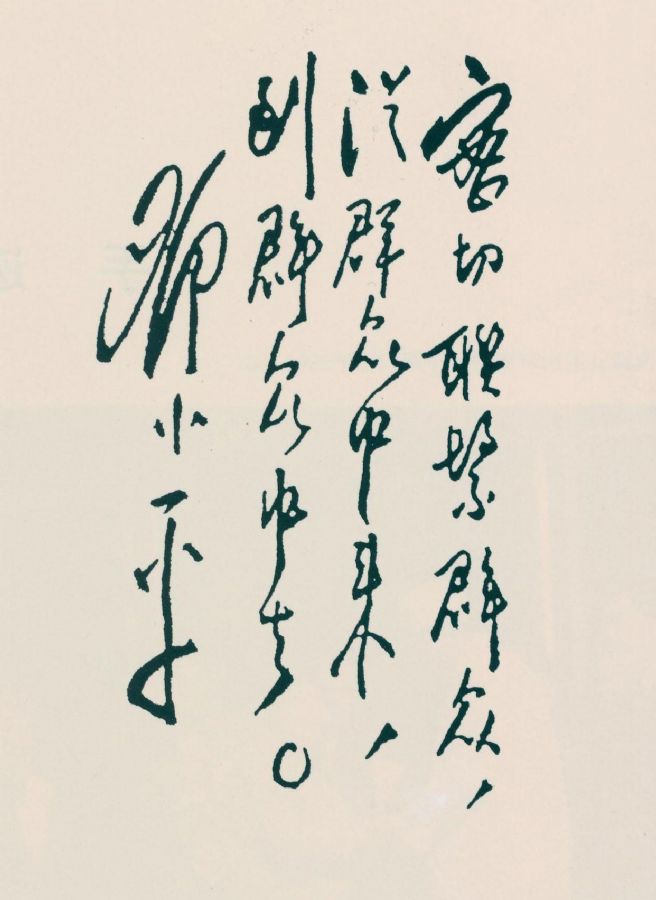 密切联繫群众，
从群众中来，
到群众中去。
邓小平